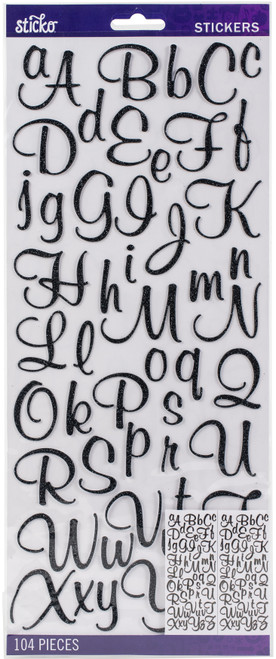 sticko
STICKERS
a A B b C c
D d E e F f
j g G I J K
H h i m n
L l M N
O k P o q Q
R S p s r U
W w V v t T
X x y Y
104 PIECES